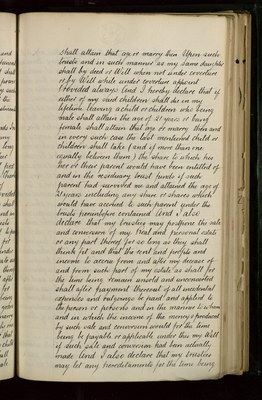 shall attain that age or marry then Upon such
trusts and in such manner as my same daughter
shall by deed or Will when not under coverture
or by Will while under coverture appoint
Provided always And I hereby declare that if
either of my said children shall die in my
lifetime leaving a child or children who being
male shall attain the age of 21 years or being
female shall attain that age or marry then and
in every such case the last mentioned child or
children shall take (and if more than one
equally between them) the share to which his
her or their parent would have been entitled of
and in the residuary trust funds if such
parent had survived me and attained the age of
21 years including any share or shares which
would have accrued to such parent under the
trusts hereinbefore contained And I also
declare that my trustees may postpone the sale
and conversion of my real and personal estate
or any part thereof for so long as they shall
think fit and that the rent and profits and
income to accrue from and after my decease of
and from such part of my estate as shall for
the time being remain unsold and unconverted
shall after payment thereout of all incidental
expenses and outgoings be paid and applied to
the person or persons and in the manner to whom
and in which the income of the moneys produced
by such sale and conversion would for the time
being be payable or applicable under this my Will
if such sale and conversion had been actually
made And I also declare that my trustees
may let any hereditaments for the time being